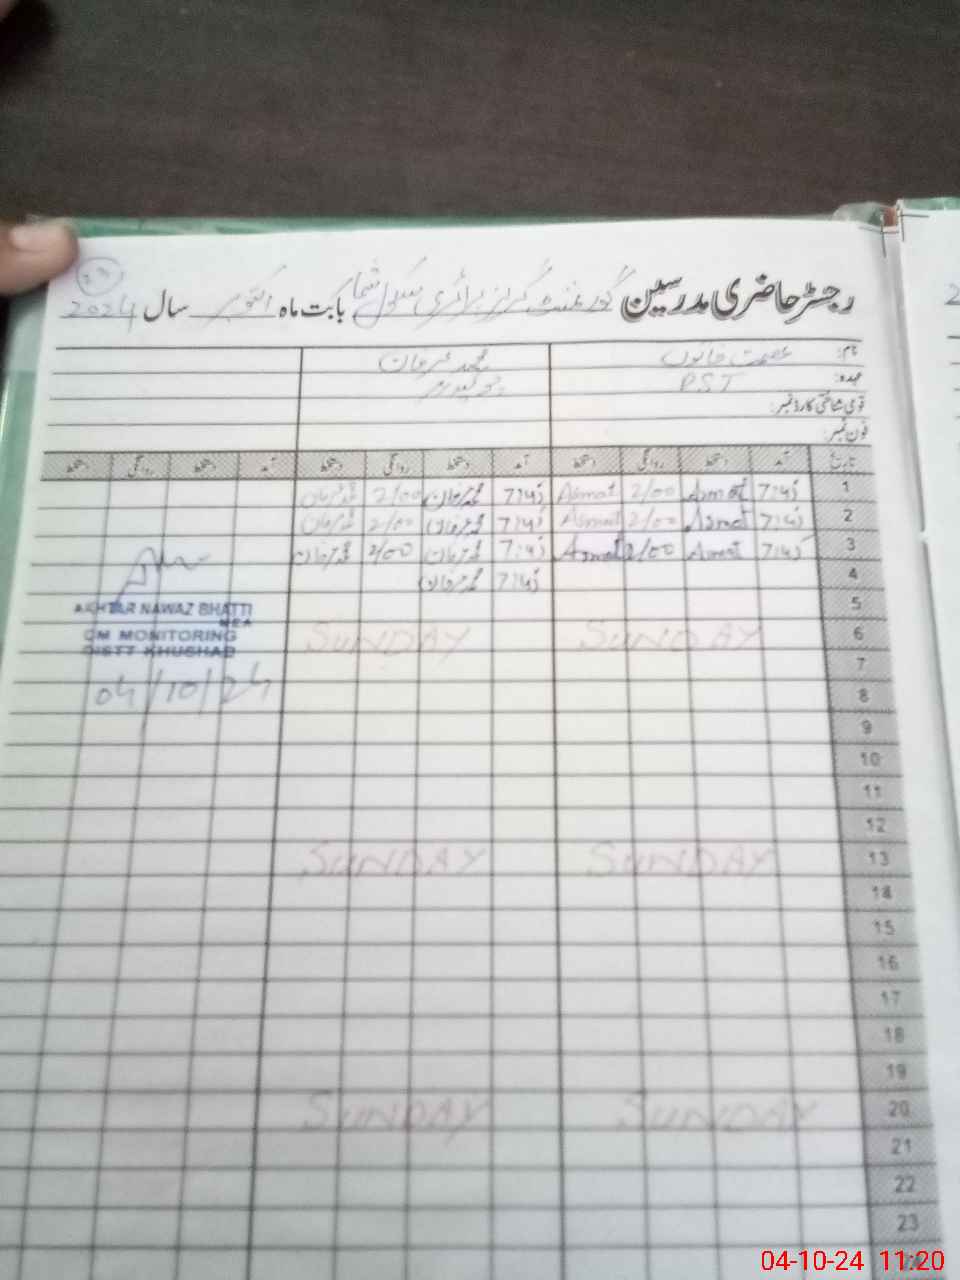 رجسٹر حاضری مدرسین گورنمنٹ گرلز پرائمری سکول بابت ماہ اکتوبر سال 2024
نام: عصمت خاتون محمد عرفان
عہدہ: PST
قومی شناختی کارڈ نمبر:
فون نمبر:
تاریخ آمد دستخط روانگی دستخط آمد دستخط روانگی دستخط آمد دستخط روانگی دستخط
1 7:45 Asmat 2/00 Asmat 7:45 محمد عرفان 2/00 محمد عرفان
2 7:45 Asmat 2/00 Asmat 7:45 محمد عرفان 2/00 محمد عرفان
3 7:45 Asmat 2/00 Asmat 7:45 محمد عرفان 2/00 محمد عرفان
4 7:45 محمد عرفان
5
6 SUNDAY SUNDAY
7
8
9
10
11
12
13 SUNDAY SUNDAY
14
15
16
17
18
19
20 SUNDAY SUNDAY
21
22
23
AKHTAR NAWAZ BHATTI
MEA
CM MONITORING
DISTT KHUSHAB
04/10/24
04-10-24 11:20